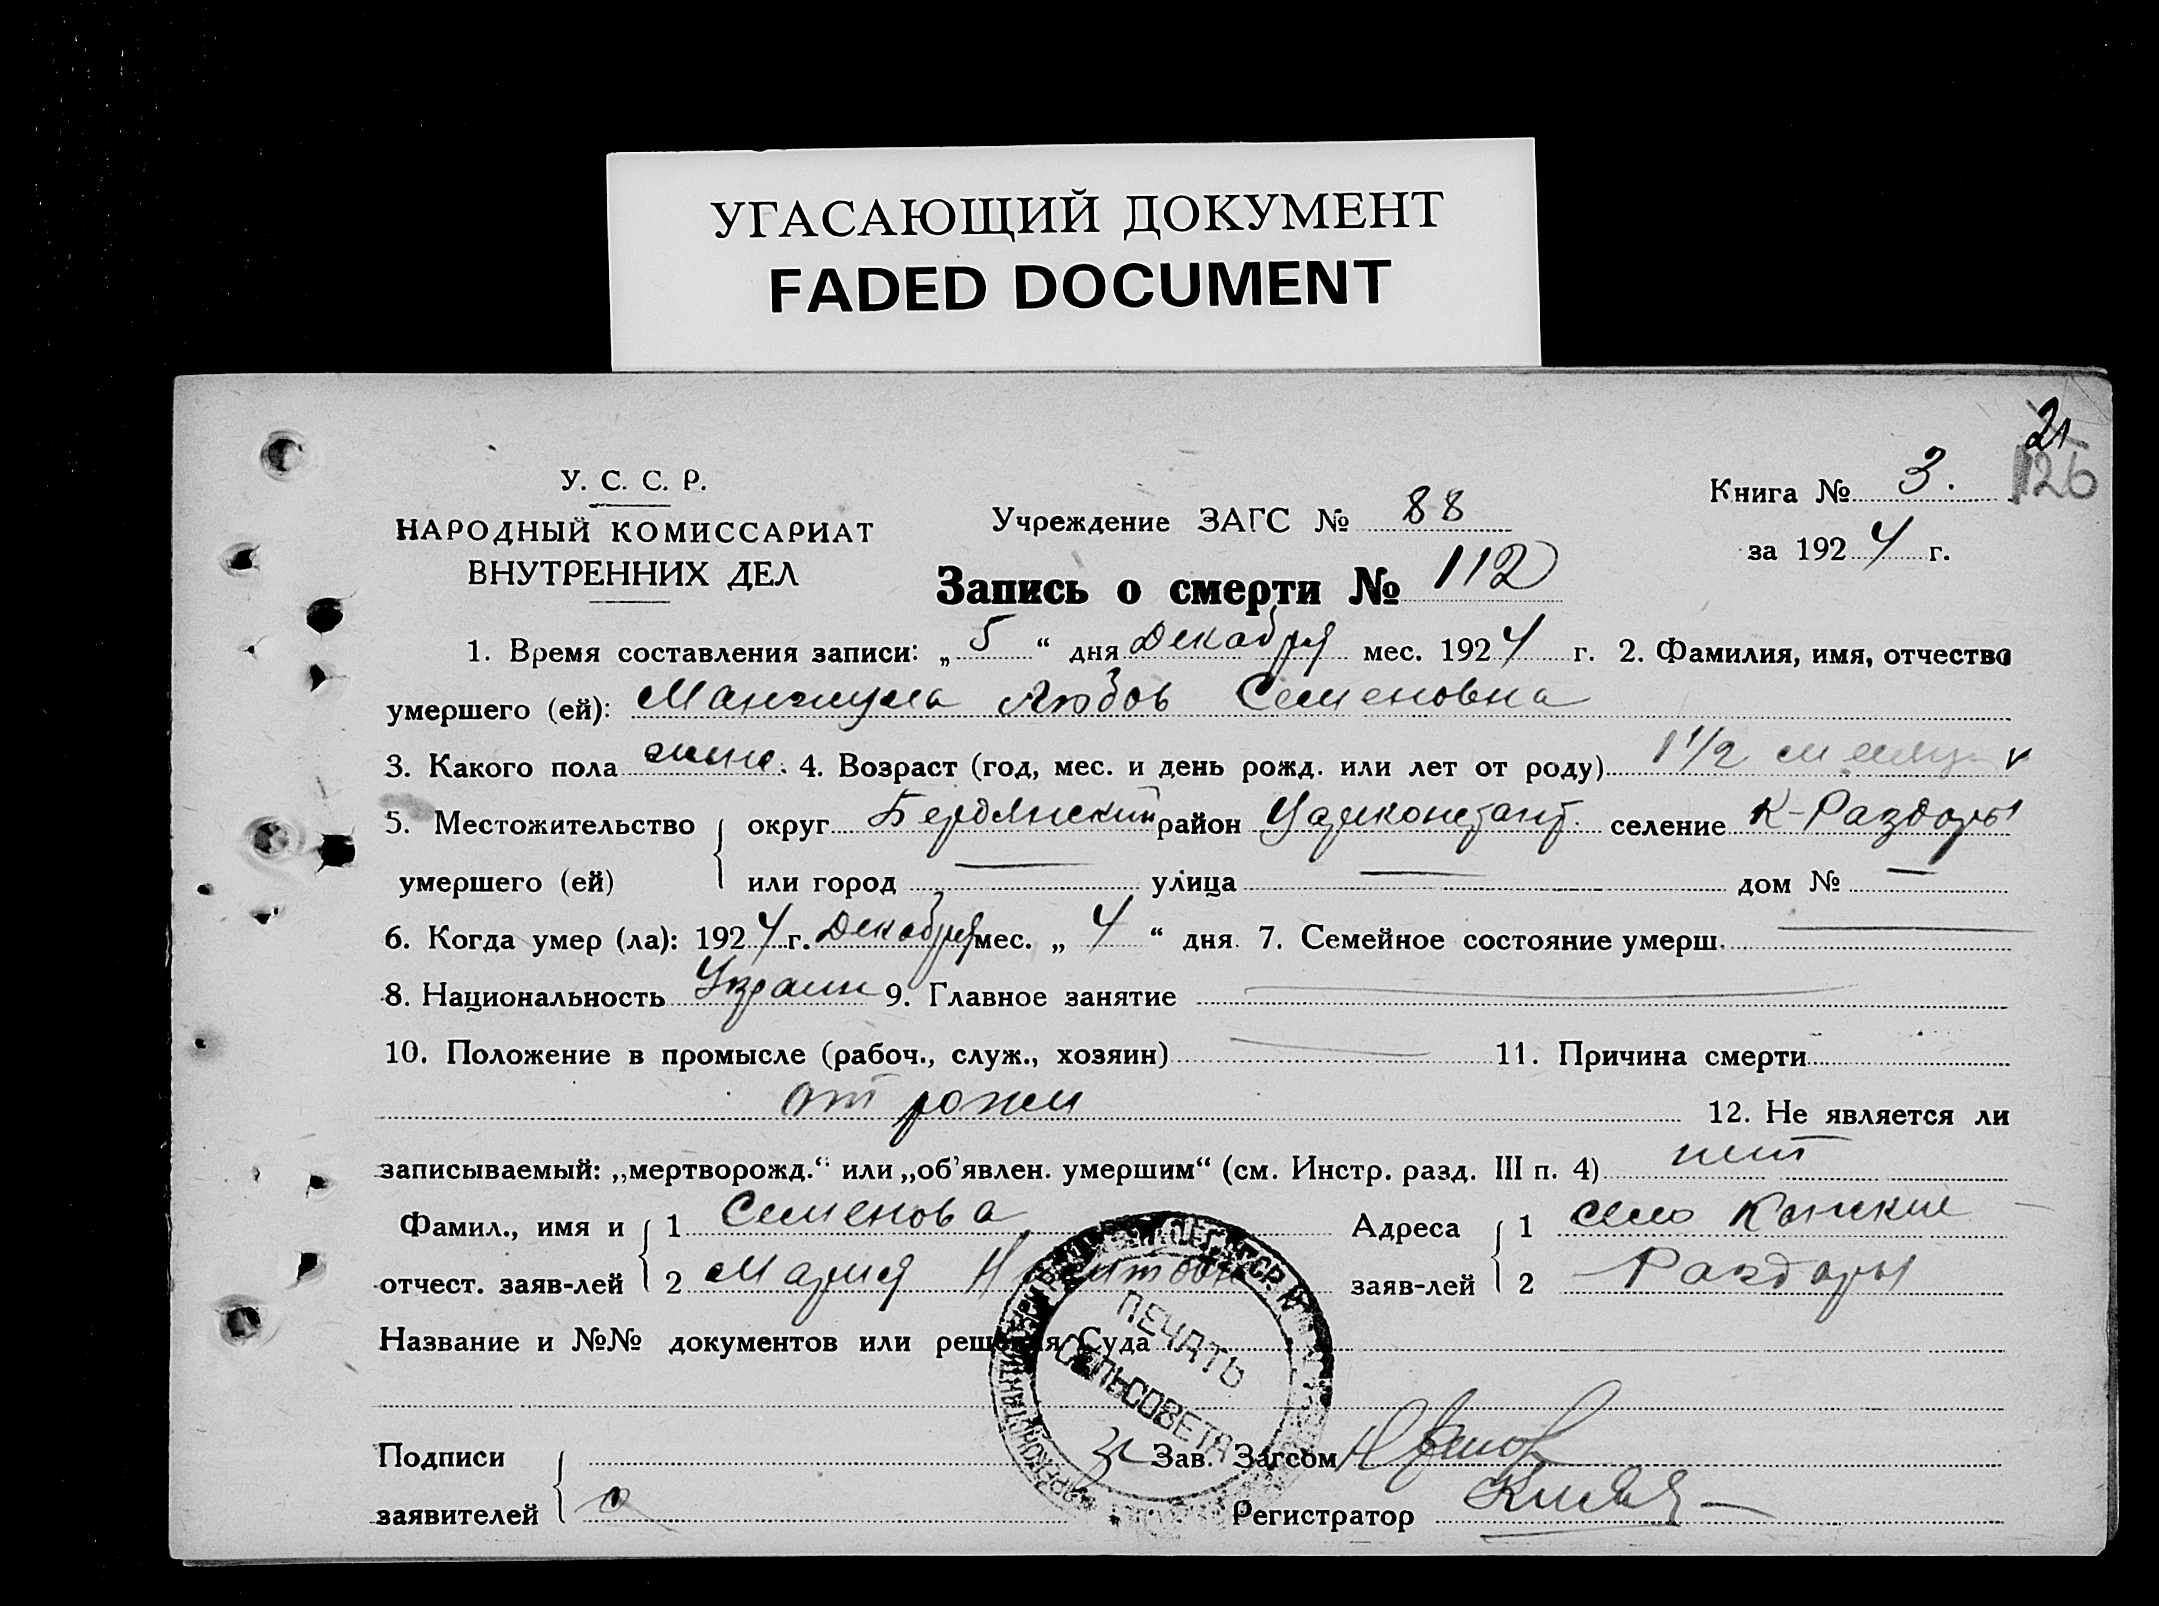 УГАСАЮЩИЙ ДОКУМЕНТ
FADED DOCUMENT
21
126
У. С. С. Р.
НАРОДНЫЙ КОМИССАРИАТ
ВНУТРЕННИХ ДЕЛ
Учреждение ЗАГС № 88
Книга № 3.
за 1924 г.
Запись о смерти № 112
1. Время составления записи: „5“ дня Декабря мес. 1924 г. 2. Фамилия, имя, отчество
умершего (ей): Любов Семеновна
3. Какого пола жен. 4. Возраст (год, мес. и день рожд. или лет от роду) 1 1/2 месяц
5. Местожительство округ Бердянский район Цареконстант. селение К-Раздоры
умершего (ей) или город — улица — дом № —
6. Когда умер (ла): 1924 г. Декабря мес. „4“ дня 7. Семейное состояние умерш. —
8. Национальность Украин 9. Главное занятие —
10. Положение в промысле (рабоч., служ., хозяин) — 11. Причина смерти
от рожи 12. Не является ли
записываемый: „мертворожд.“ или „об'явлен. умершим“ (см. Инстр. разд. III п. 4) нет
Фамил., имя и 1 Семенова Адреса 1 село Конские
отчест. заяв-лей 2 Мария заяв-лей 2 Раздоры
Название и №№ документов или решения Суда
ПЕЧАТЬ
СЕЛЬСОВЕТА
Подписи Зав. Загсом
заявителей Регистратор